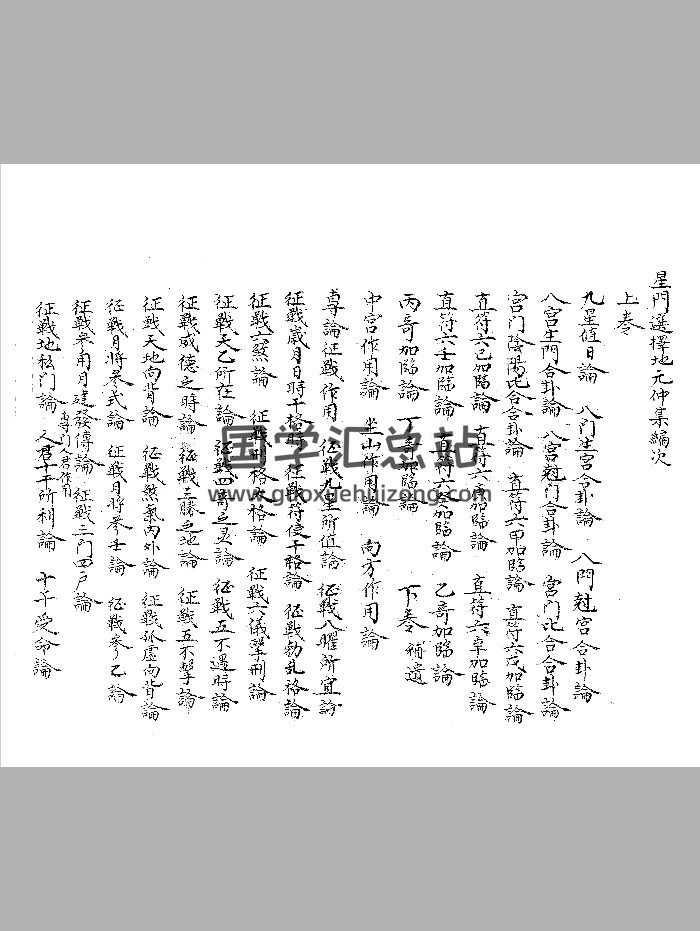 星門選擇地元仲集編次
上卷
九星值日論 八門生宮合卦論 八門尅宮合卦論
八宮生門合卦論 八宮尅門合卦論 宮門比合合卦論
宮門陰陽比合合卦論 直符六甲加臨論 直符六戊加臨論
直符六己加臨論 直符六庚加臨論 直符六辛加臨論
直符六壬加臨論 直符六癸加臨論 乙奇加臨論
丙奇加臨論 丁奇加臨論 下卷 補遺
中宮作用論 坐山作用論 向方作用論
專論征戰作用 征戰九星所值論 征戰八曜所宜論
征戰歲月日時干格論 征戰符使干格論 征戰勃亂格論
征戰六煞論 征戰刑格大格論 征戰六儀擊刑論
征戰天乙所在論 征戰四奇之灵論 征戰五不遇時論
征戰威德之時論 征戰三勝之地論 征戰五不擊論
征戰天地向背論 征戰煞氣內外論 征戰孤虛向背論
征戰月將參式論 征戰月將參壬論 征戰參乙論
征戰兵用月建發傳論 征戰三門四戶論
專門人君作用
征戰地私门論 人君十干所利論 十干受命論
国学汇总站
www.guoxuehuizong.com